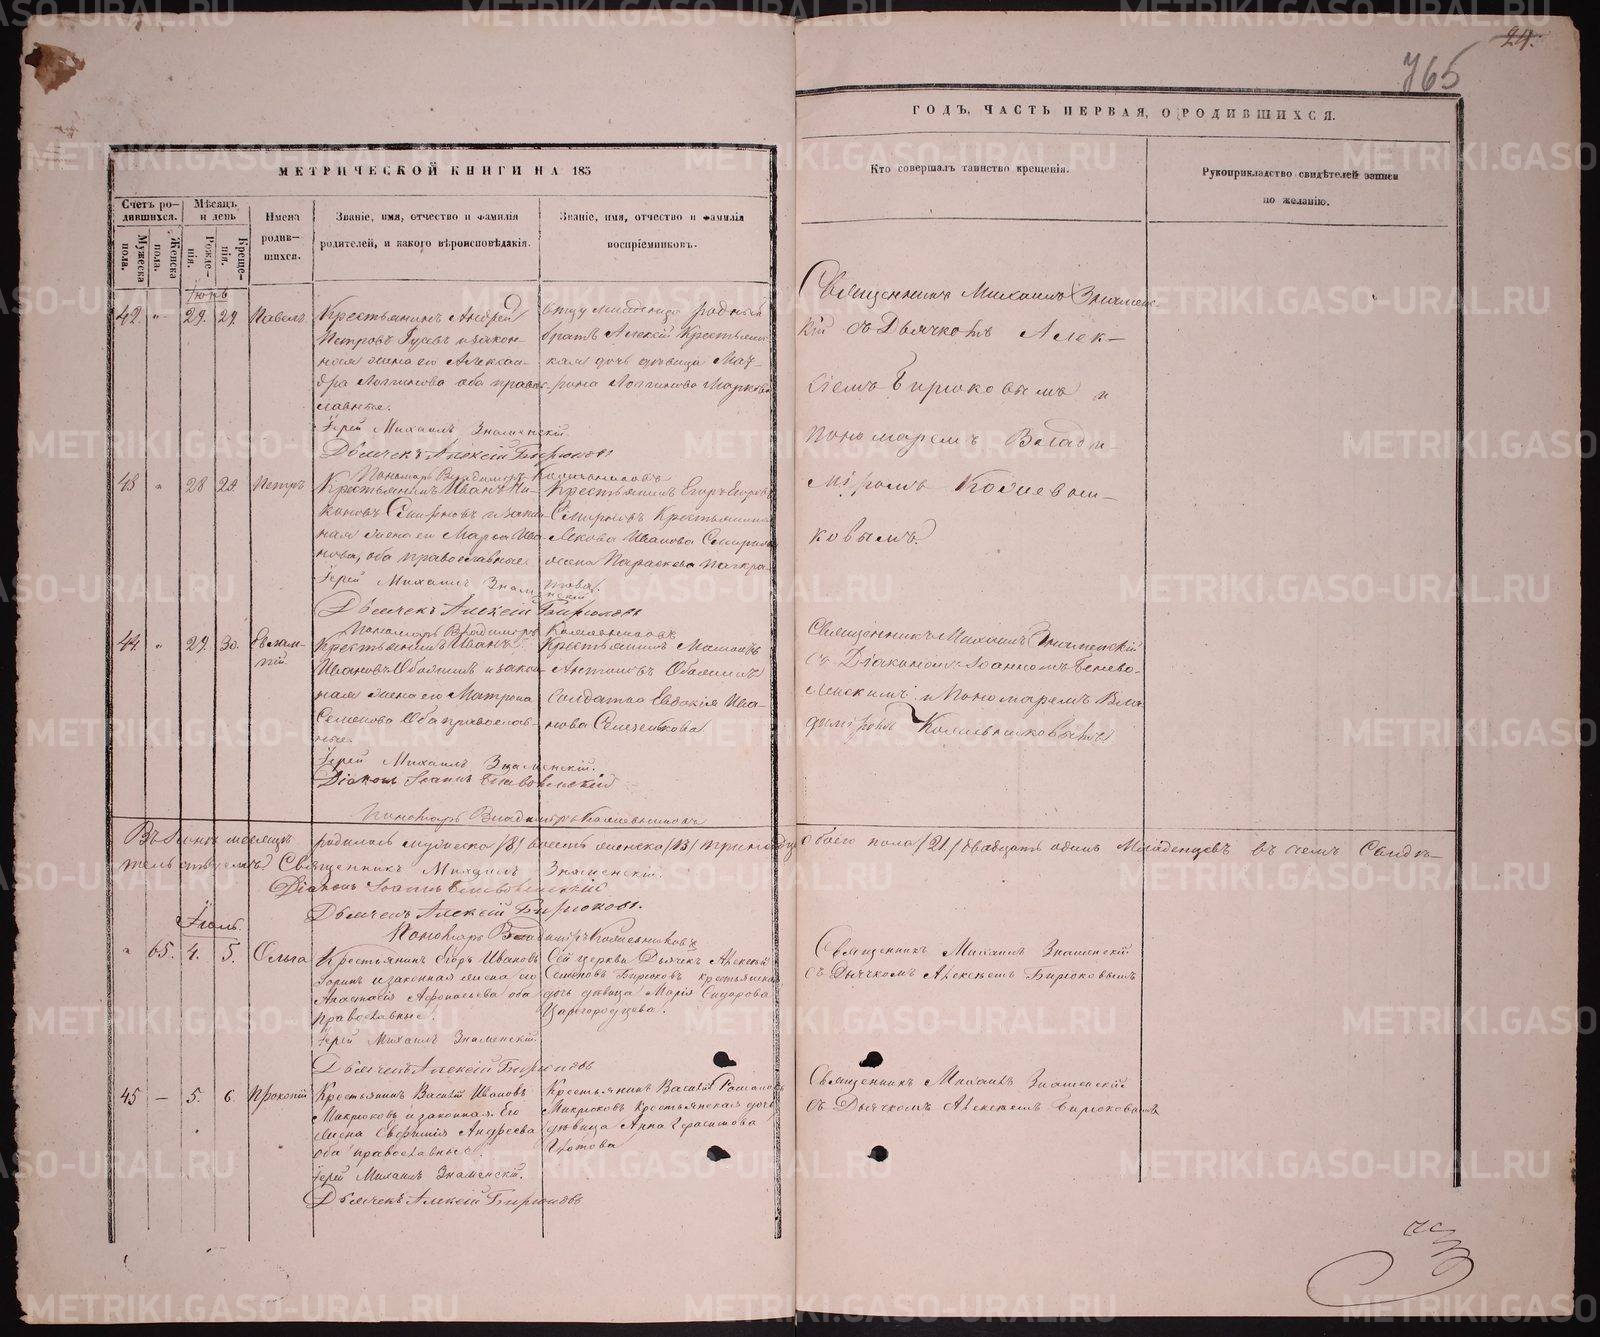 24.
765
МЕТРИЧЕСКОЙ КНИГИ НА 185
ГОДЪ, ЧАСТЬ ПЕРВАЯ, О РОДИВШИХСЯ.
Счетъ ро-
дившихся.
Мужеска
пола.
Женска
пола.
Мѣсяцъ
и день
Рожде-
нія.
Креще-
нія.
Имена
родив-
шихся.
Званіе, имя, отчество и фамилія
родителей, и какого вѣроисповѣданія.
Званіе, имя, отчество и фамилія
воспріемниковъ.
Кто совершалъ таинство крещенія.
Рукоприкладство свидѣтелей записи
по желанію.
Іюнь
42. " 27. 29. Павелъ
Крестьянинъ Андрей
Петровъ Гусевъ и закон-
ная жена его Алексан-
дра Логгинова оба право-
славные.
Іерей Михаилъ Знаменскій.
Дьячекъ Алексій Бирюковъ
Пономарь Владиміръ Колмаковъ
отцу младенца родный
братъ Алексій Крестьянс-
кая дочь дѣвица Мат-
рона Логгинова Маркова
Священникъ Михаилъ Знаменс-
кій съ Дьячкомъ Алек-
сіемъ Бирюковымъ и
Пономаремъ Влади-
міромъ
ковымъ.
43 " 28 29. Петръ
Крестьянинъ Иванъ Ни-
коновъ Смирновъ и закон-
ная жена его Марѳа Ива-
нова, оба православные
Іерей Михаилъ Знаменскій
Дьячекъ Алексій Бирюковъ
Пономарь Владиміръ
Крестьянинъ Егоръ Егоровъ
Смирновъ Крестьянина
Якова Иванова Смирнова
жена Параскева Панкра-
това.
44. " 29. 30. Евлам-
пій.
Крестьянинъ Иванъ
Ивановъ и закон-
ная жена его Матрона
Семенова Оба православ-
ные.
Іерей Михаилъ Знаменскій.
Діаконъ Іоаннъ
Пономарь Владиміръ
Крестьянинъ
Антоновъ
солдатка Евдокія Ива-
нова Семенькова
Священникъ Михаилъ Знаменскій
съ Діакономъ Іоанномъ
и Пономаремъ Вла-
диміромъ
Въ Іюнѣ месяцѣ родилось мужеска /8/ восемь женска /13/ тринадцать
Обоего пола /21/ двадцать одинъ Младенцевъ въ чемъ Свидѣ-
тельствуемъ Священникъ Михаилъ Знаменскій.
Діаконъ Іоаннъ
Дьячекъ Алексій Бирюковъ.
Пономарь Владиміръ
Іюль.
" 65. 4. 5. Ольга
Крестьянинъ Егоръ Ивановъ
Зоринъ и законная жена его
Анастасія Афонасьева оба
православные.
Іерей Михаилъ Знаменскій.
Дьячекъ Алексій Бирюковъ
Сей церкви Дьячекъ Алексѣй
Семеновъ Бирюковъ крестьянская
дочь дѣвица Марія Сидорова
Царегородцева.
Священникъ Михаилъ Знаменскій
съ Дьячкомъ Алексѣемъ Бирюковымъ
45 — 5. 6. Прокопій
Крестьянинъ Василій Ивановъ
Микрюковъ и законная Его
жена Евфимія Андреева
оба православные.
Іерей Михаилъ Знаменскій.
Дьячекъ Алексій Бирюковъ
Крестьянинъ Василій Романовъ
Микрюковъ Крестьянская дочь
дѣвица Анна Герасимова
Священникъ Михаилъ Знаменскій
съ Дьячкомъ Алексѣемъ Бирюковымъ
METRIKI.GASO-URAL.RU